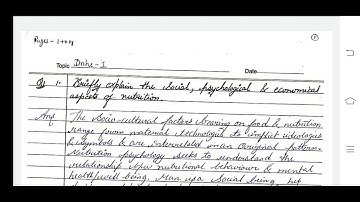 Topic Dnhe-1 Date
Q 1. Briefly explain the social, psychological & economical
aspects of nutrition.
Ans The Socio-cultural factors drawing on food & nutrition
range from material technologies to implicit ideologies
& symbols & are interrelated in an original pattern.
Nutrition psychology seeks to understand the
relationship b/w nutritional behaviour & mental
health/well being. Man is a social being, his